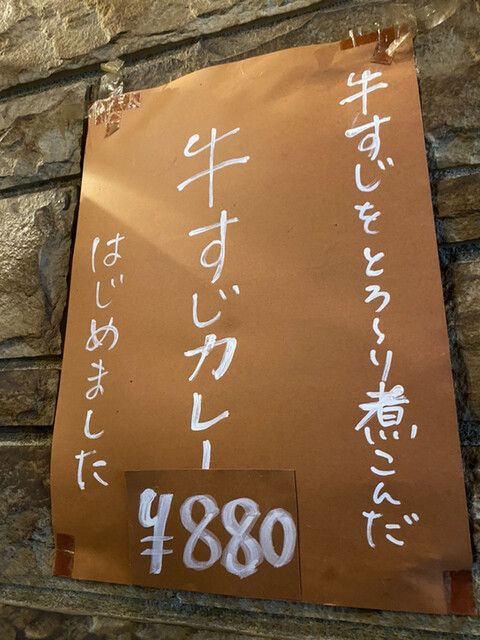 牛すじをとろ〜り煮こんだ
牛すじカレー
はじめました
¥880